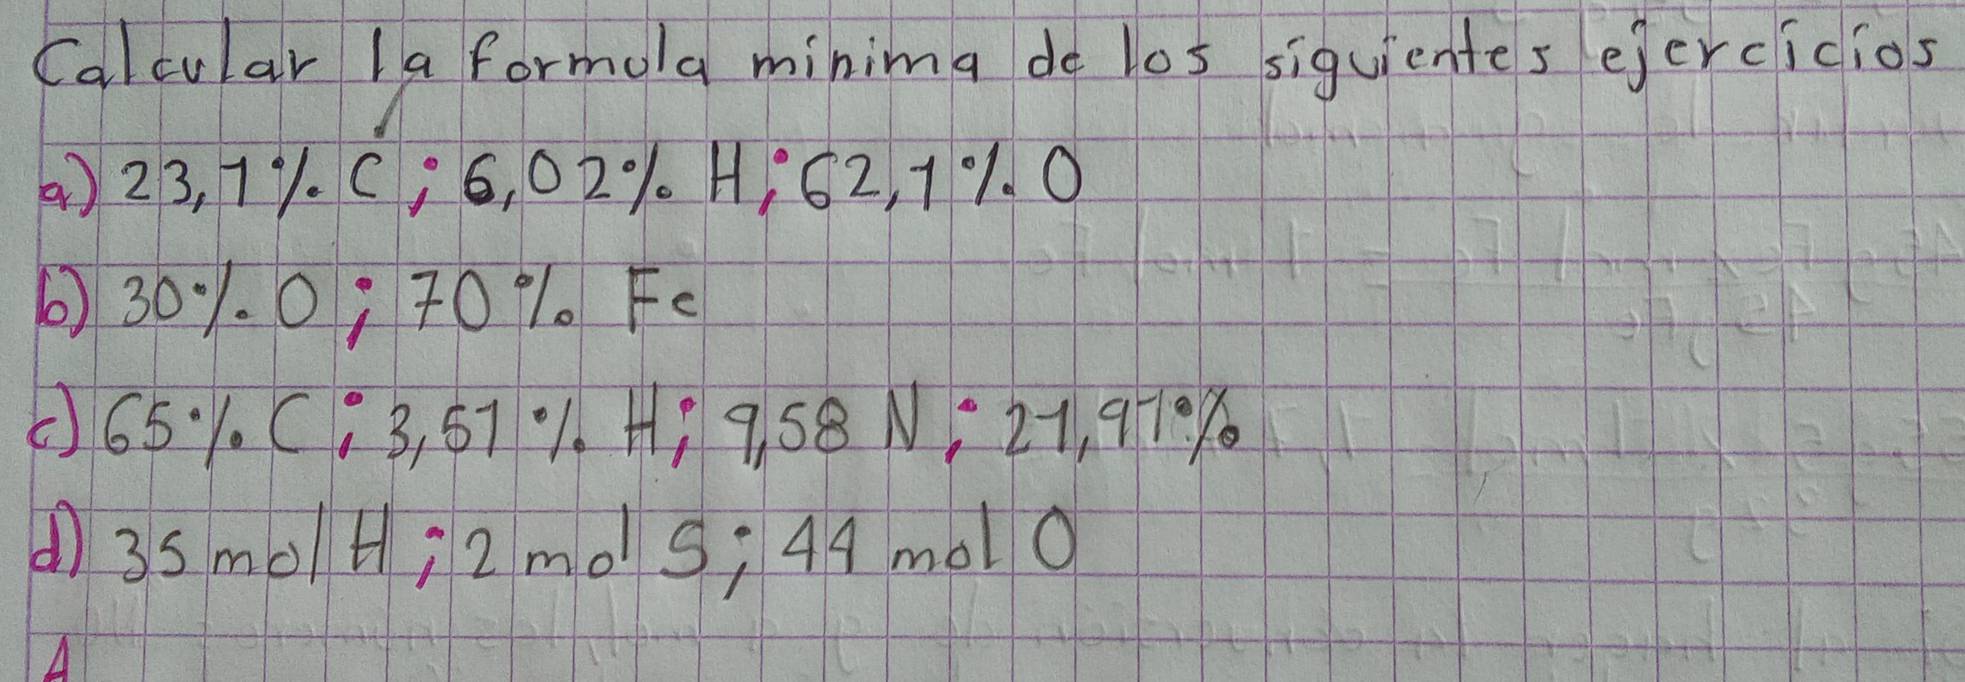 Calcular la formula minima de los siguientes ejercicios
a) 23,1% C; 6,02% H; 62,1% O
b) 30% O; 70% Fe
c) 65% C; 3,51% H; 9,58 N; 21,91%
d) 35 mol H; 2 mol S; 44 mol O
A